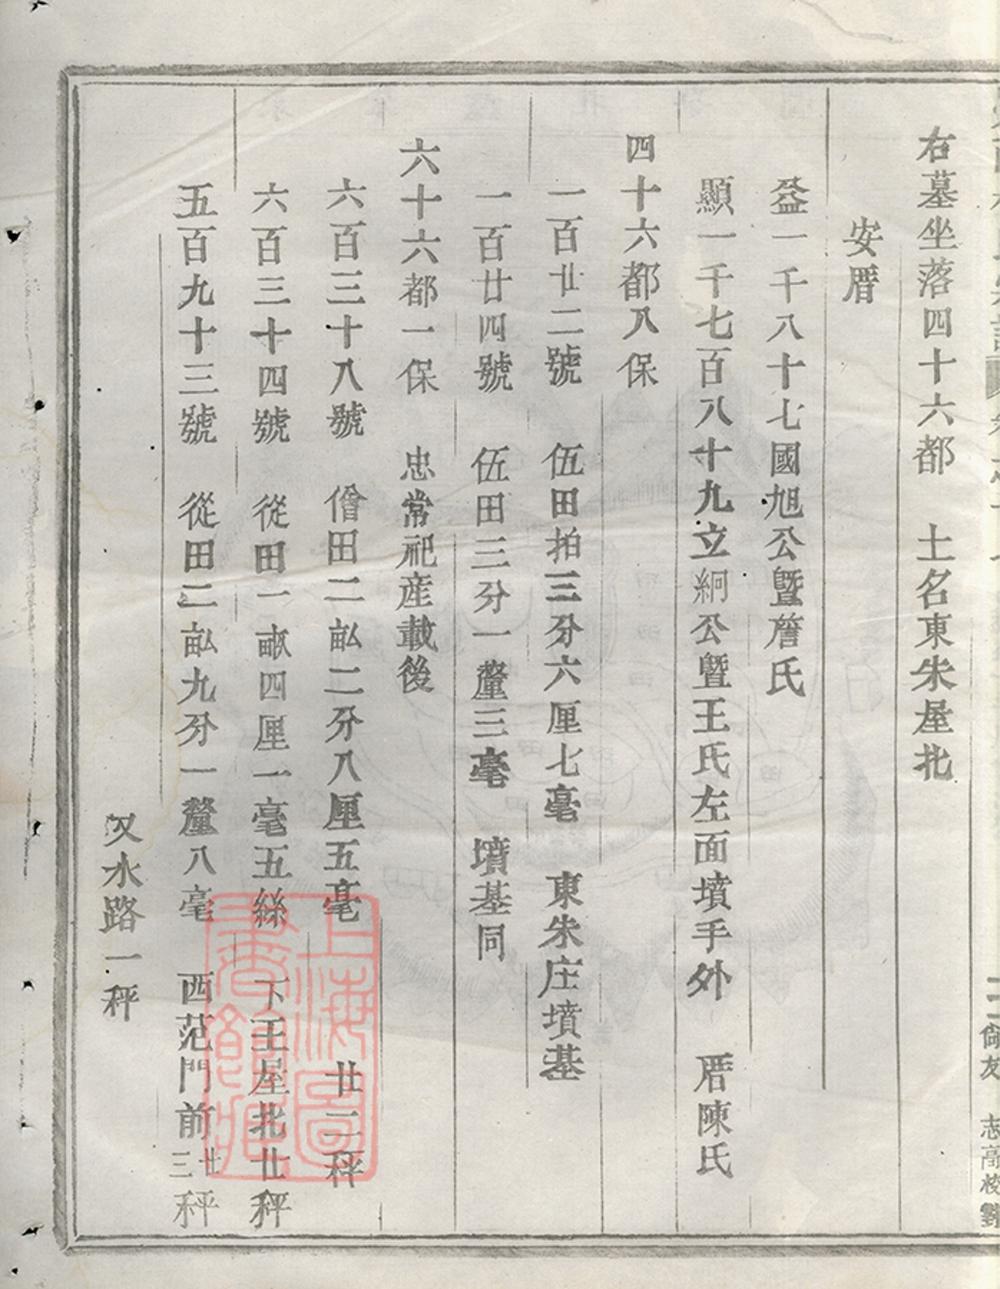 右墓坐落四十六都　土名東朱屋北
安厝
益一千八十七國旭公暨詹氏
顯一千七百八十九立絅公暨王氏左面墳手外　厝陳氏
四十六都八保
一百廿二號　伍田拍三分六厘七毫　東朱庄墳基
一百廿四號　伍田三分一釐三毫　墳基同
六十六都一保　忠常祀產載後
六百三十八號　僧田二畝二分八厘五毫　廿二秤
六百三十四號　從田一畝四厘一毫五絲　下王屋北廿秤
五百九十三號　從田二畝九分一釐八毫　西范門前廿三秤
又水路一秤
上海圖書館藏